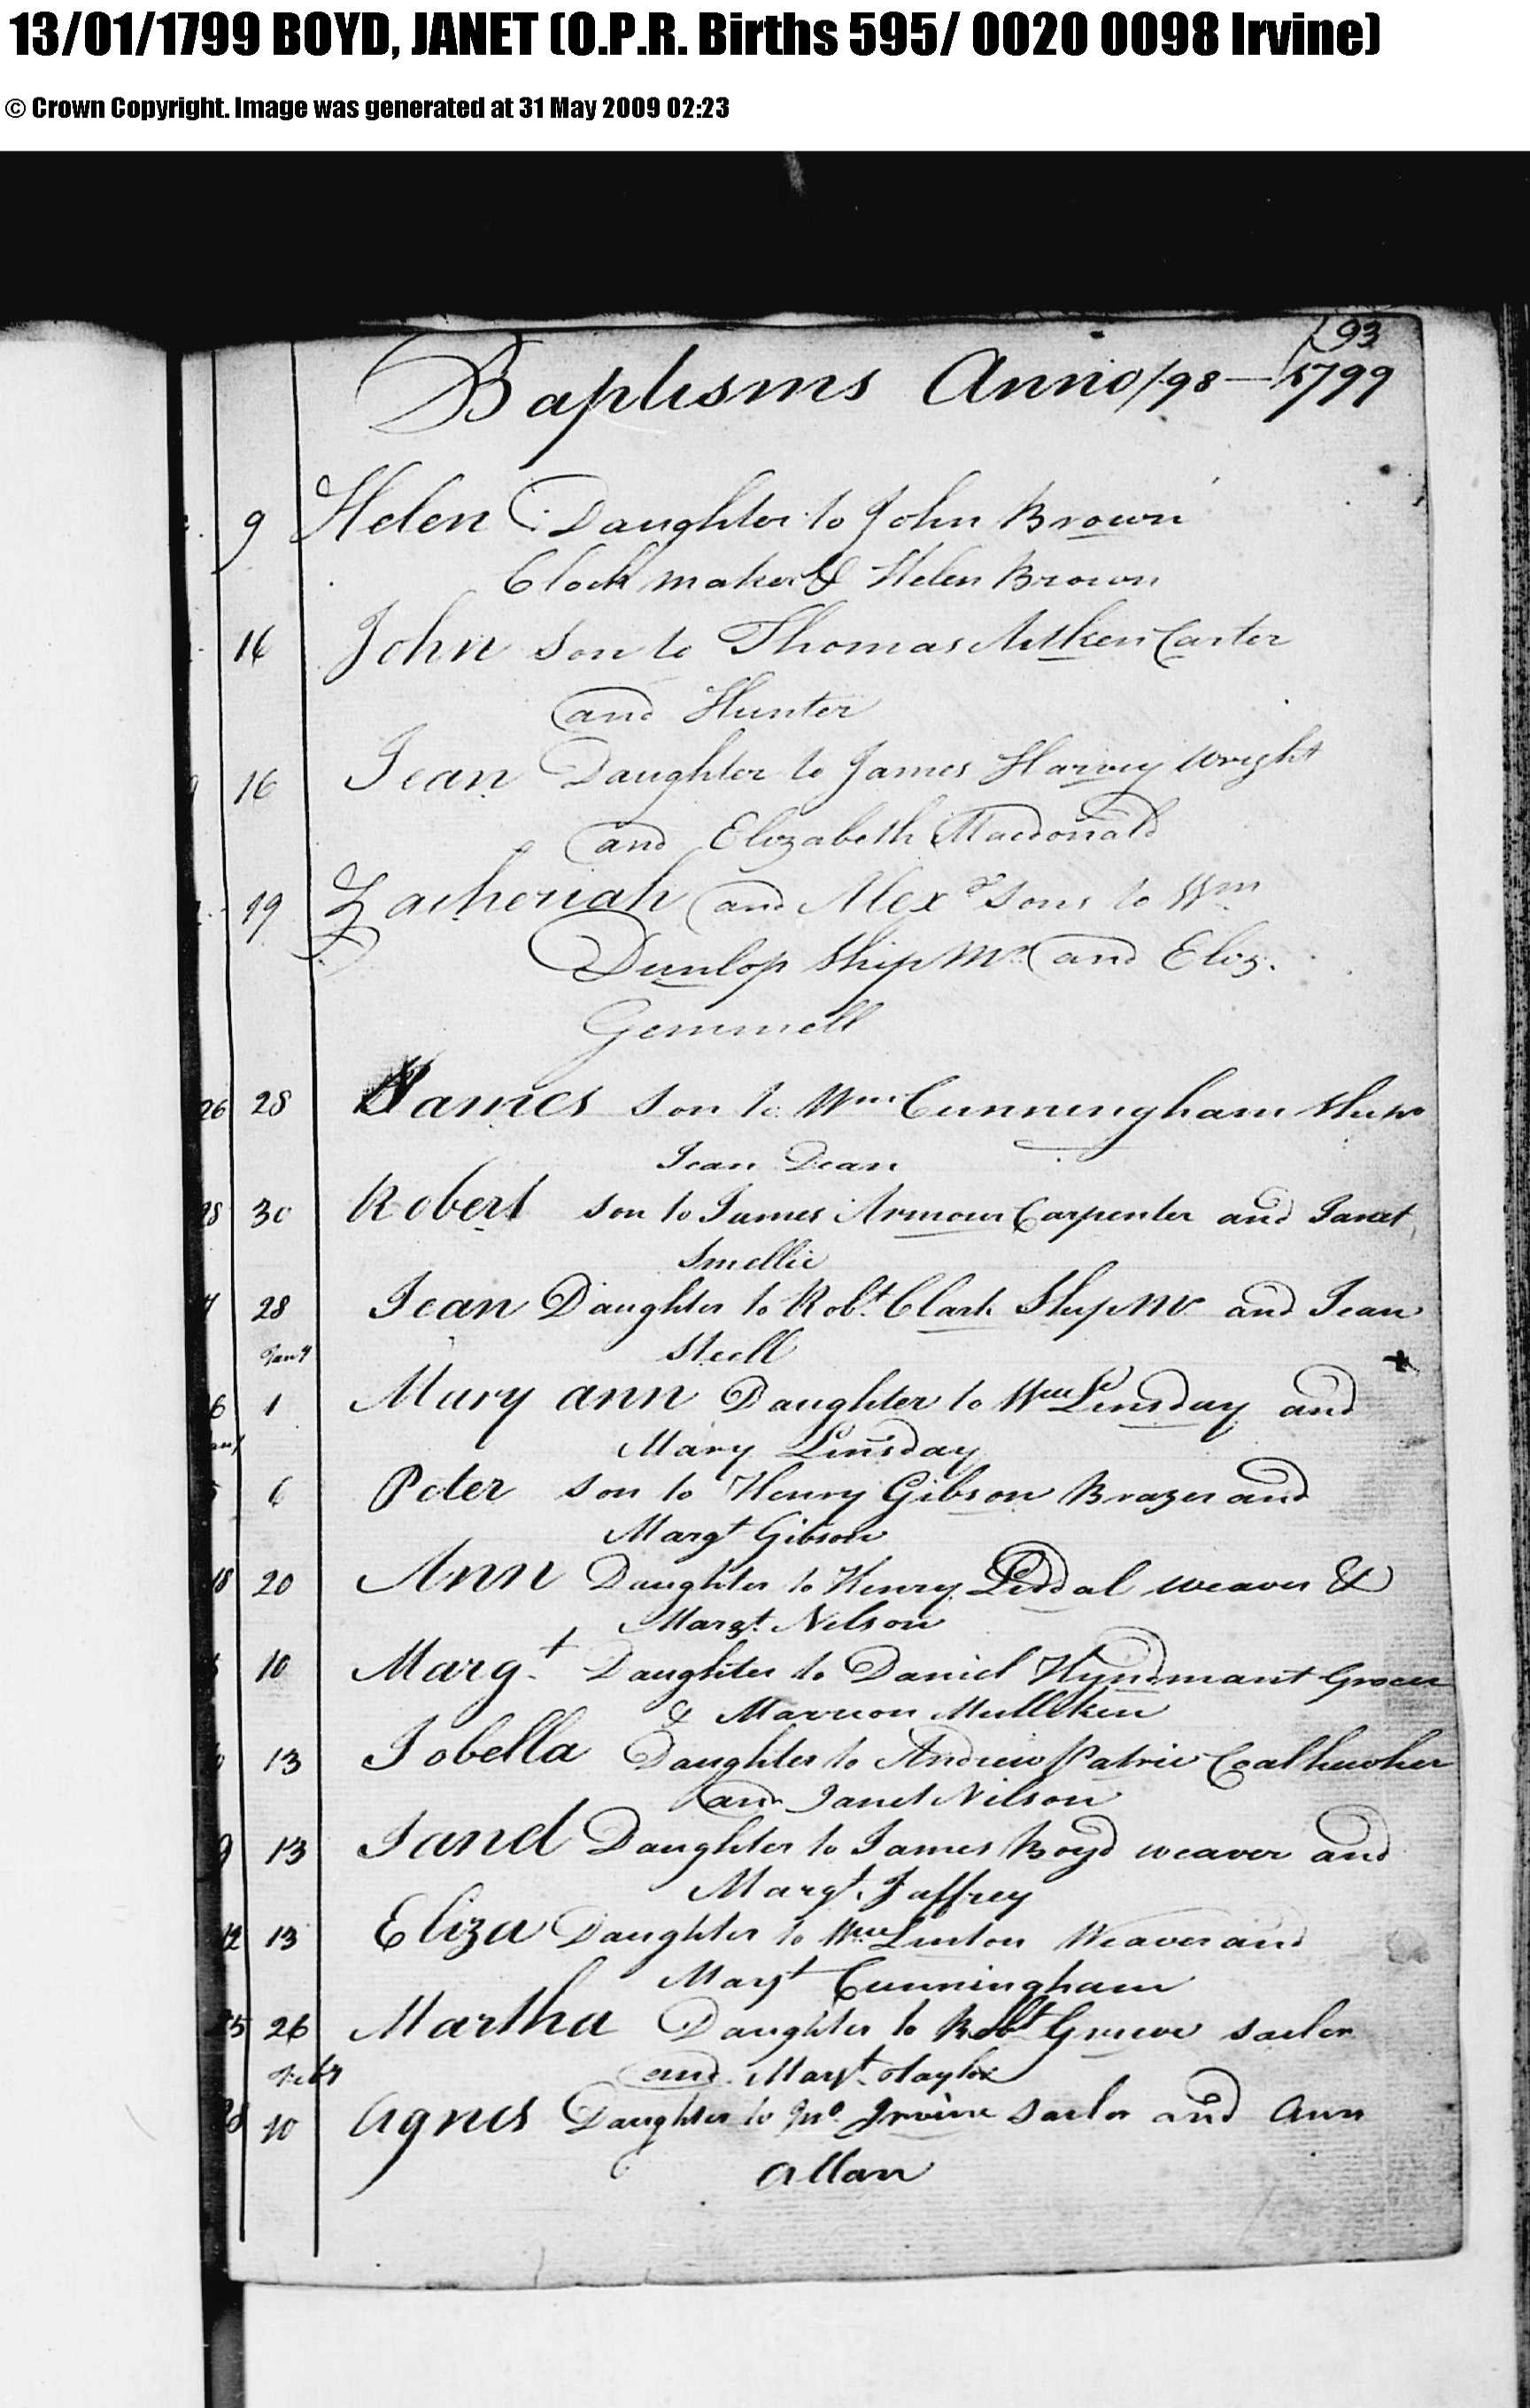 13/01/1799 BOYD, JANET (O.P.R. Births 595/ 0020 0098 Irvine)
© Crown Copyright. Image was generated at 31 May 2009 02:23
93
Baptisms Anno /98 — 1799
9 Helen Daughter to John Brown
Clock maker & Helen Brown
16 John Son to Thomas Aitken Carter
and Hunter
16 Jean Daughter to James Harvey Wright
and Elizabeth Macdonald
19 Zacheriah and Alexr Sons to Wm
Dunlop Ship Mr and Eliz.
Gemmell
26 28 James Son to Wm Cunningham
Jean Dean
28 30 Robert Son to James Armour Carpenter and Janet
Smellie
28 Jean Daughter to Robt Clark Ship Mr and Jean
Steell
Jany
1 Mary ann Daughter to Wm Linsday and
Mary Linsday
6 Peter Son to Henry Gibson Brazer and
Margt Gibson
18 20 Ann Daughter to Henry Liddal weaver &
Margt Nelson
10 Margt Daughter to Daniel Hyndman Grocer
& Marrion Mulliken
13 Isobella Daughter to Andrew Patric Coalhewher
and Janet Nilson
9 13 Janet Daughter to James Boyd weaver and
Margt Jaffrey
12 13 Eliza Daughter to Wm Linton Weaver and
Margt Cunningham
25 26 Martha Daughter to Robt Grieve Sailor
and Margt Taylor
Feby
28 10 Agnes Daughter to Jno Irvine Sailor and Ann
Allan